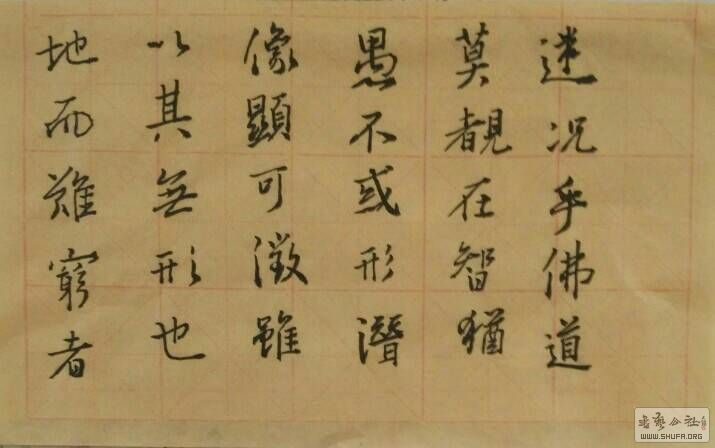 迷况乎佛道
莫覩在智猶
愚不或形潛
像顯可徵雖
以其無形也
地而難窮者
书艺公社
WWW.SHUFA.ORG